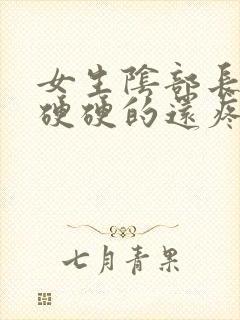 女生陰部長
硬硬的還疼
七月青果